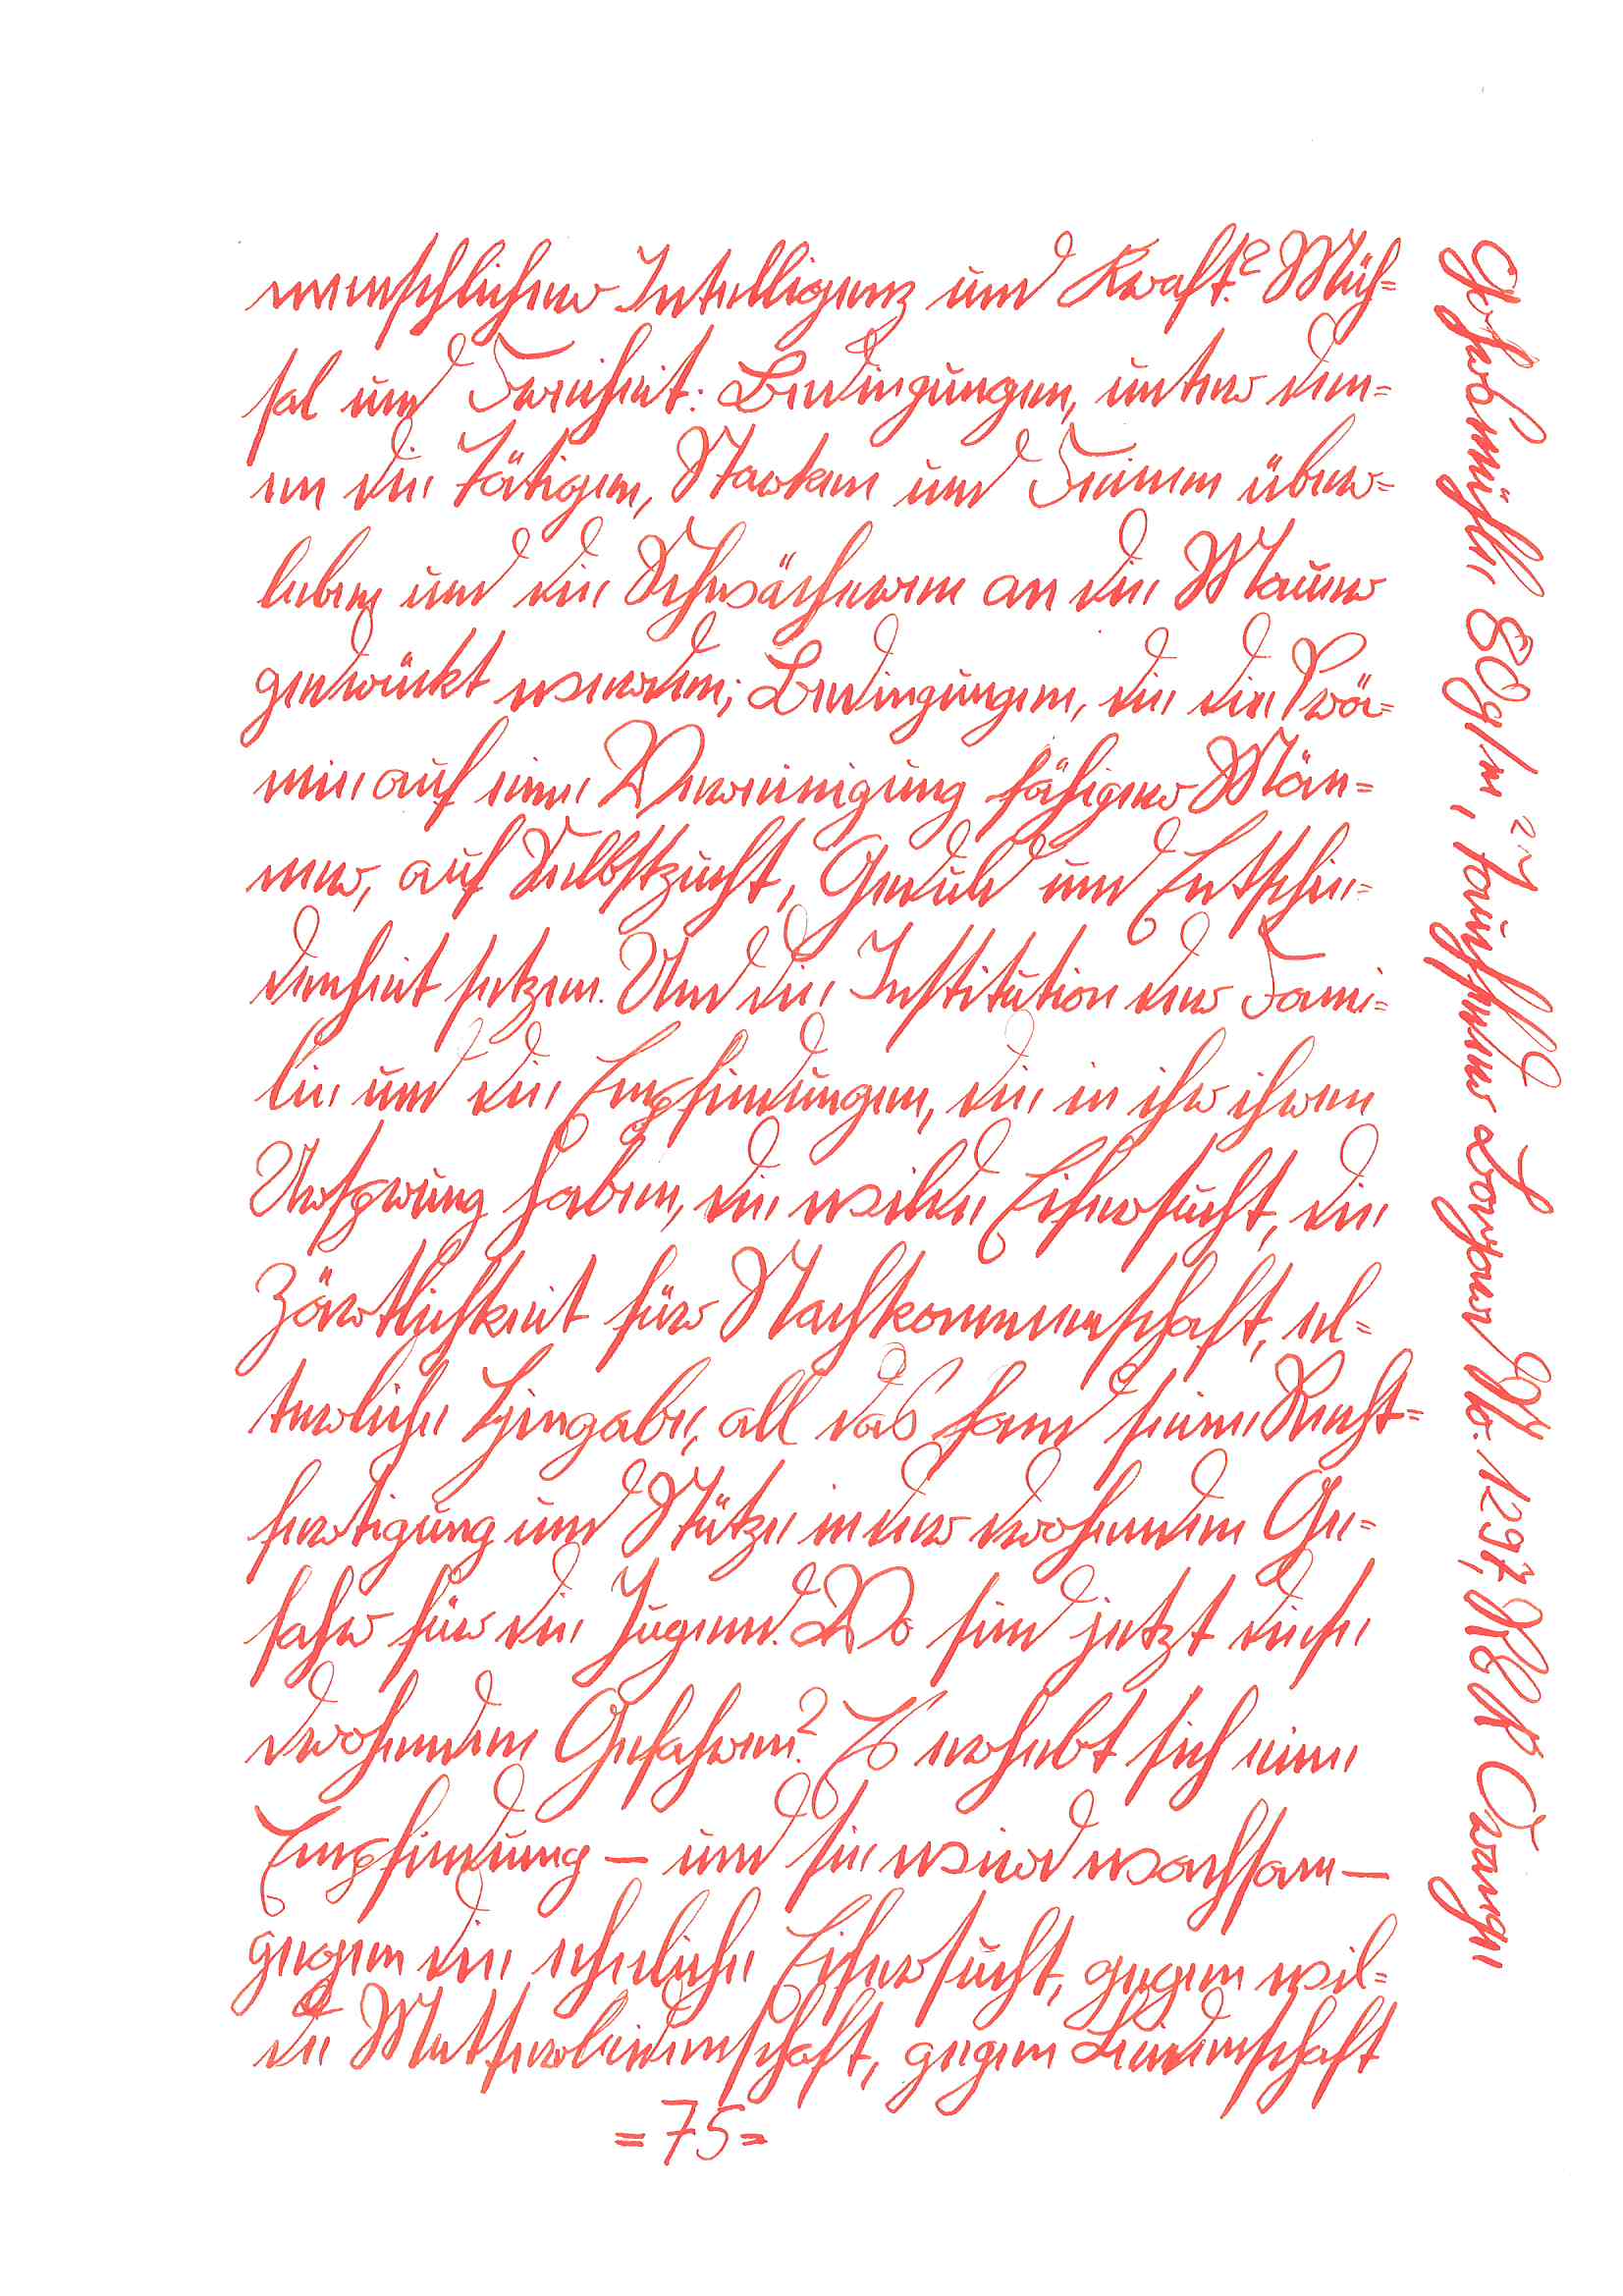 menschlicher Intelligenz und Kraft? Müh=
sal und Freiheit: Bedingungen, unter den=
en die Tätigen, Starken und Feinen über=
leben und die Schwächeren an die Mauer
gedrückt werden; Bedingungen, die die Prä=
mie auf eine Vereinigung fähiger Män=
ner, auf Selbstzucht, Geduld und Entschie=
denheit setzen. Und die Institution der Fami=
lie und die Empfindungen, die in ihr ihren
Ursprung haben, die wilde Eifersucht, die
Zärtlichkeit für Nachkommenschaft, el=
terliche Hingabe, all das fand seine Recht=
fertigung und Stütze in der drohenden Ge=
fahr für die Jugend. Wo sind jetzt diese
drohenden Gefahren? Es erhebt sich eine
Empfindung – und sie wird wachsam –
gegen die eheliche Eifersucht, gegen wil=
de Mutterleidenschaft, gegen Leidenschaft
=75=
80g/m²,
Nr. 1297,
Orange